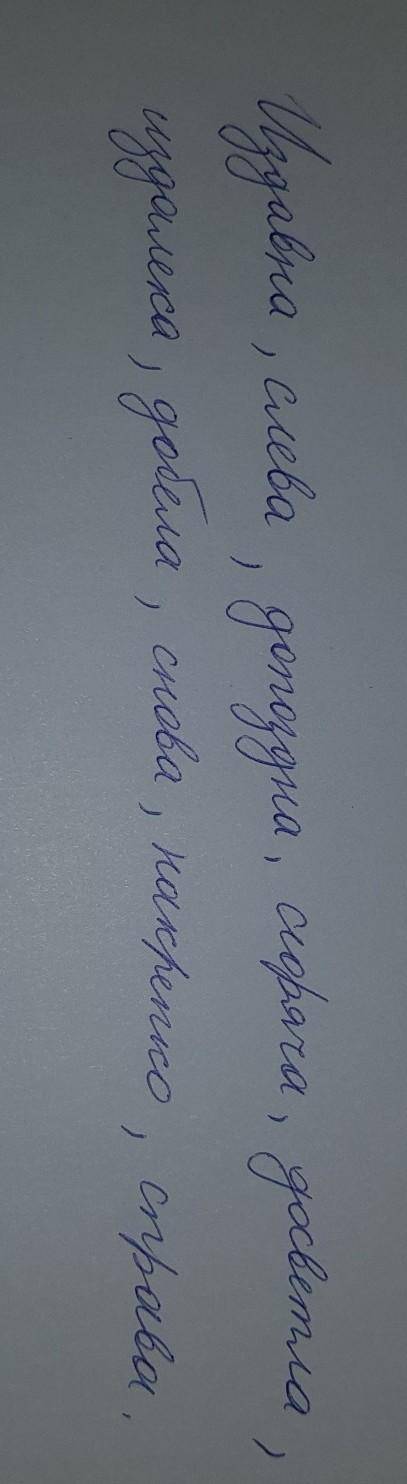 Издавна, слева, допоздна, сгоряча, досветла,
издалека, добела, снова, накрепко, справа.